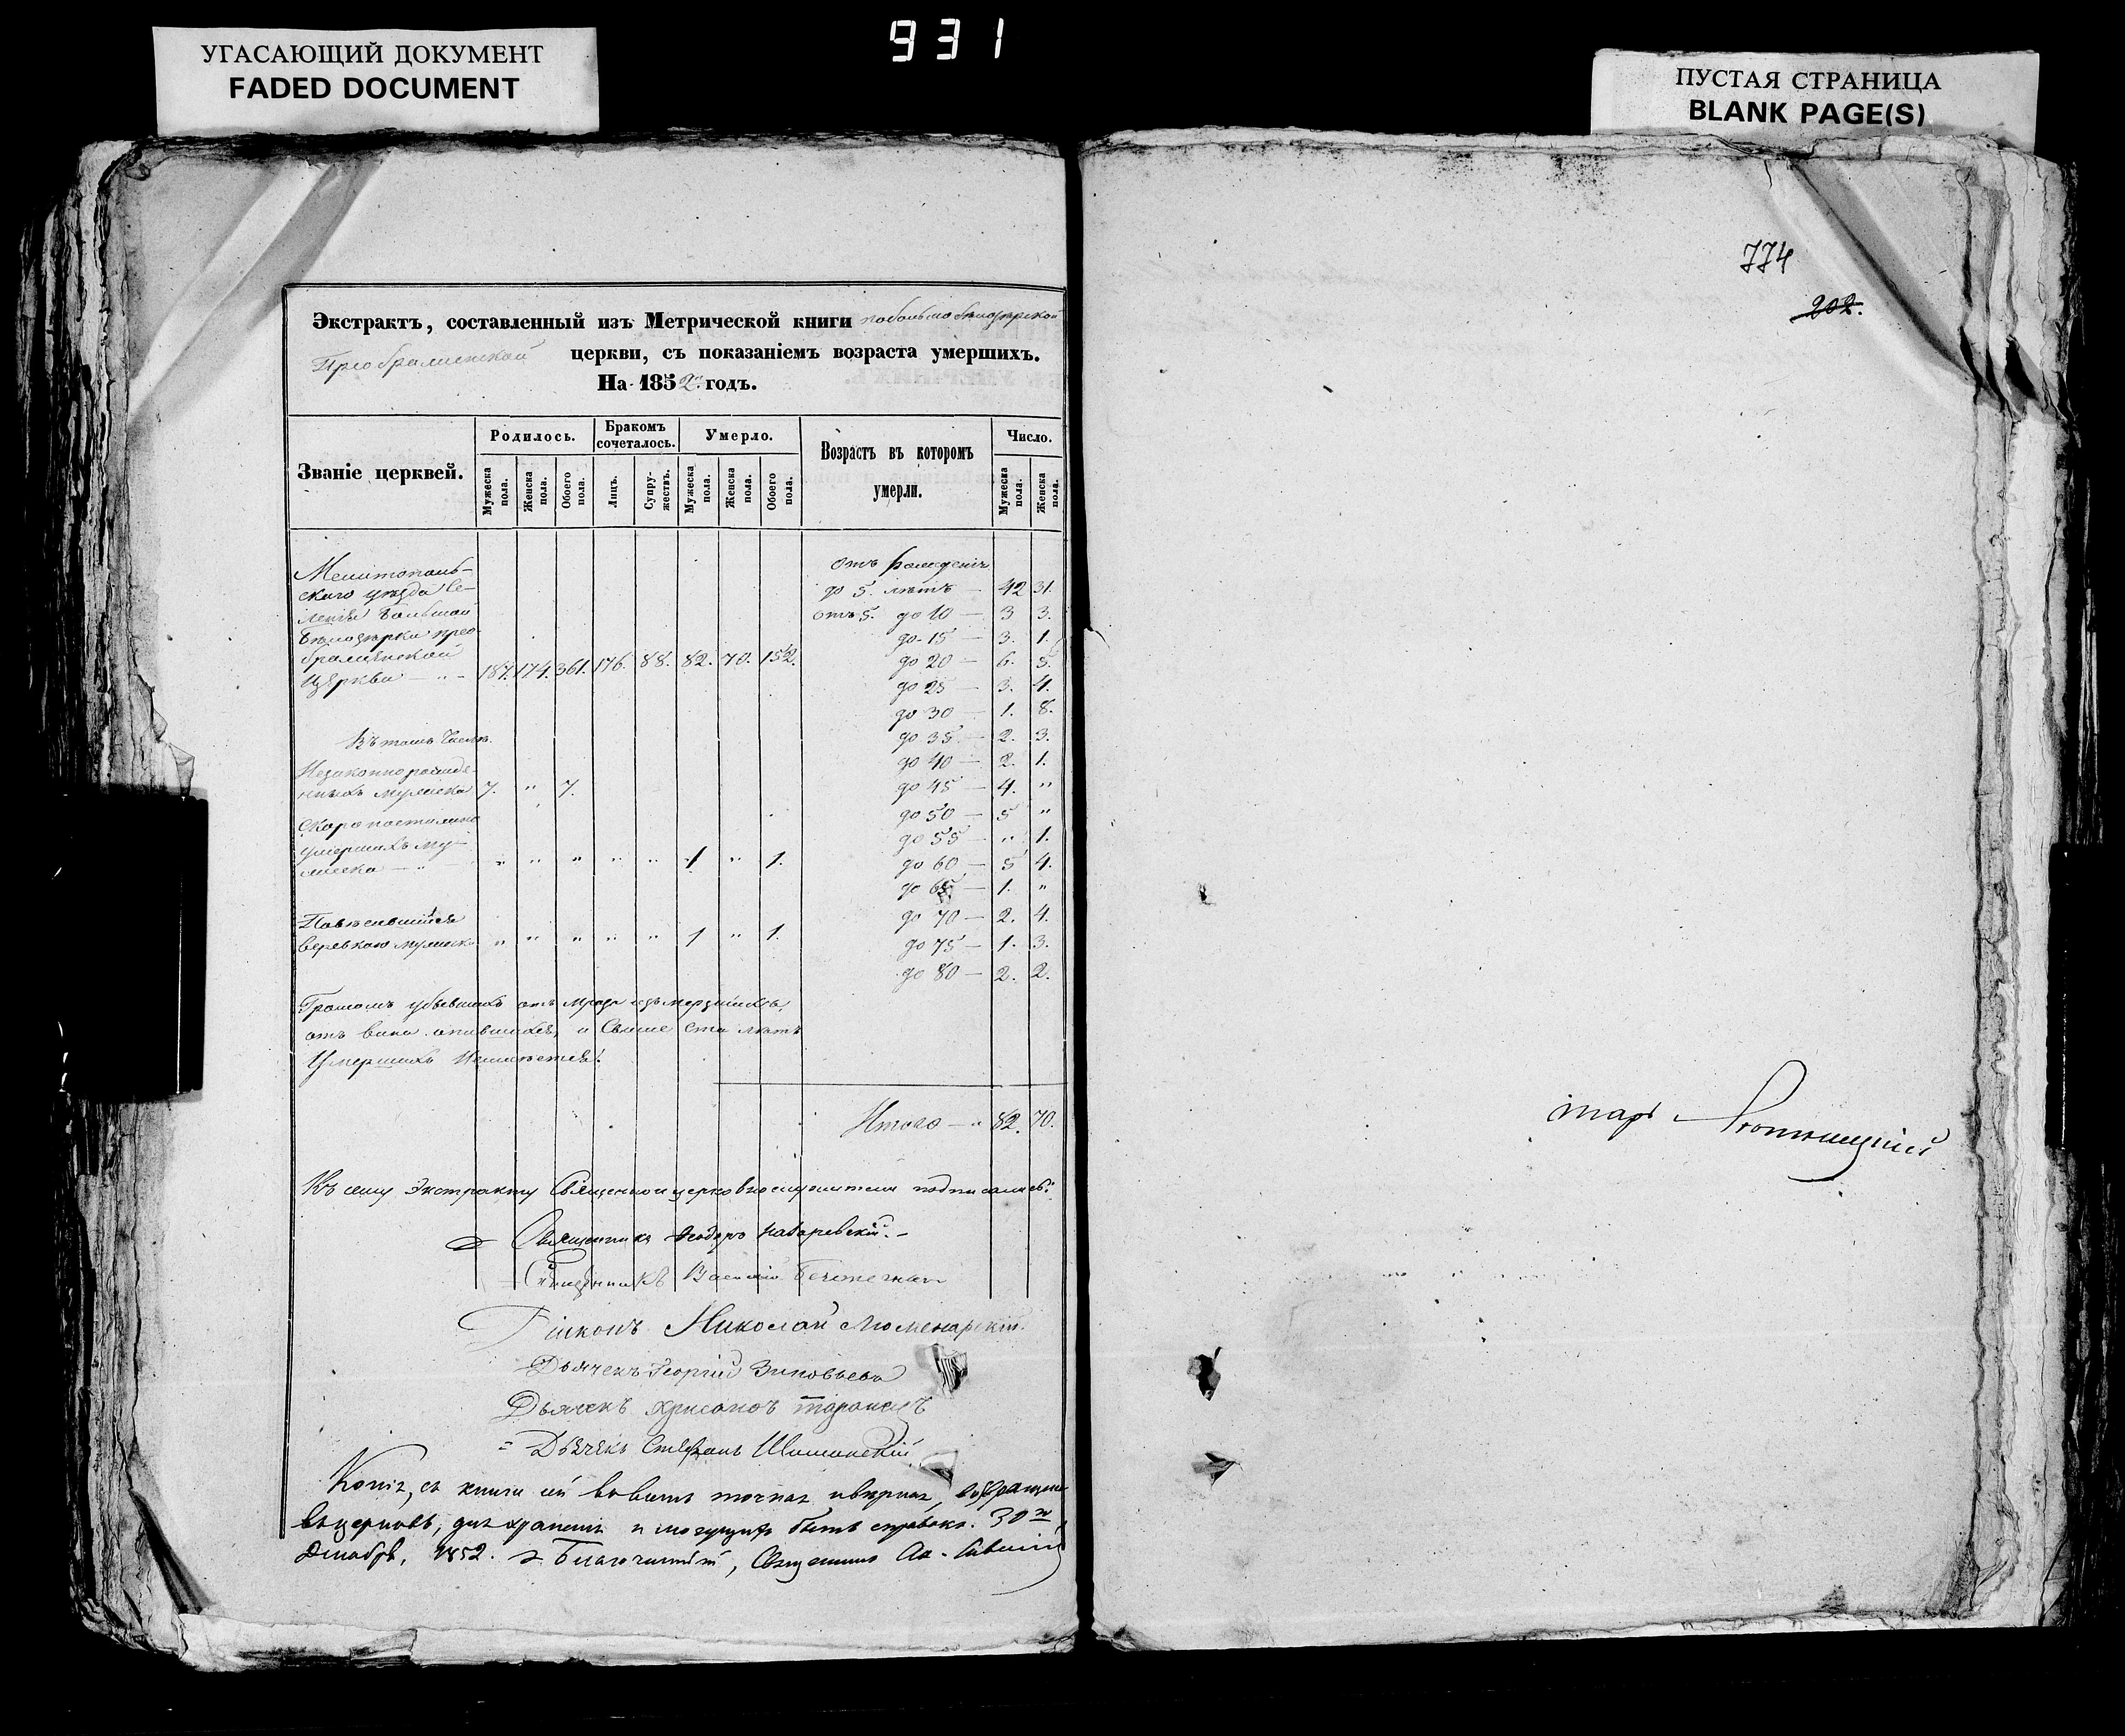 УГАСАЮЩИЙ ДОКУМЕНТ
FADED DOCUMENT
931
ПУСТАЯ СТРАНИЦА
BLANK PAGE(S)
774
202.
Экстрактъ, составленный изъ Метрической книги
Преображенской церкви, съ показаніемъ возраста умершихъ.
На 1852 годъ.
Званіе церквей.
Родилось.
Бракомъ сочеталось.
Умерло.
Возрастъ въ которомъ умерли.
Число.
Мужеска пола.
Женска пола.
Обоего пола.
Лицъ.
Супружествъ.
Мужеска пола.
Женска пола.
Обоего пола.
Мужеска пола.
Женска пола.
Мелитополь-
скаго уѣзда Се-
ленія Большой
Бѣлозерки Прео-
браженской
Церкви — 187. 174. 361. 176. 88. 82. 70. 152.
Въ томъ числѣ.
Незаконнорожде-
нныхъ мужеска 7. " 7.
Скоропостижно
умершихъ му-
жеска — " " " " " 1 " 1.
Повѣсившійся
веревкою мужеска " " " " " 1 " 1.
отъ рожденія
до 5. лѣтъ — 42 31.
отъ 5. до 10 — 3 3.
до 15 — 3. 1.
до 20 — 6. 5.
до 25 — 3. 4.
до 30 — 1. 8.
до 35 — 2. 3.
до 40 — 2. 1.
до 45 — 4. "
до 50 — 5 "
до 55 — " 1.
до 60 — 5 4.
до 65 — 1. "
до 70 — 2. 4.
до 75 — 1. 3.
до 80 — 2. 2.
Громомъ убывшихъ отъ мраза
отъ вина опившихся, и Свыше Ста лѣтъ
Умершихъ
Итого — " 82. 70.
Къ сему Экстракту Священноицерковнослужители подписались:
Священникъ Ѳеодоръ
Священникъ Василій
Діаконъ Николай
Дьячекъ Георгій Зиновьевъ
Дьячекъ
Дьячекъ Стефанъ Шиманскій
Копія, съ книги
для храненія и могущихъ быть справокъ. 30го
Декабря, 1852. Благочинный, Священникъ
тарь